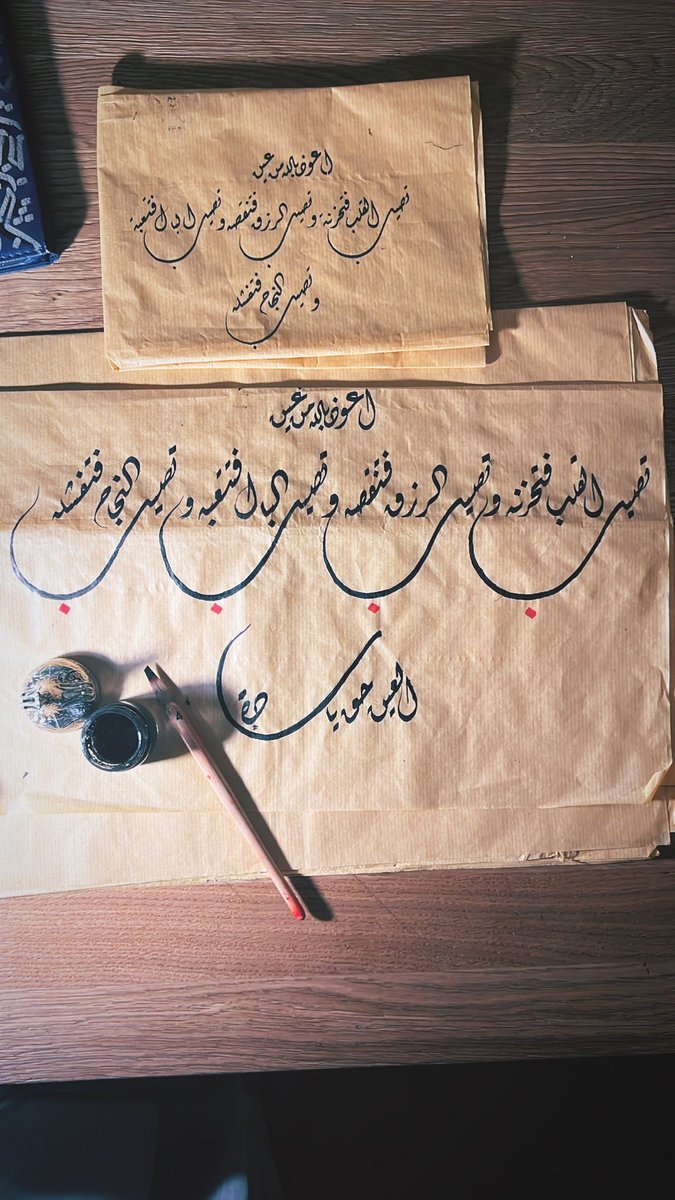 اعوذ بالله من عين
تصيب القلب فتحزنه وتصيب الرزق فتنقصه وتصيب البال فتتعبه
وتصيب النجاح فتفشله
اعوذ بالله من عين
تصيب القلب فتحزنه وتصيب الرزق فتنقصه وتصيب البال فتتعبه وتصيب النجاح فتفشله
العين حق يا سادة